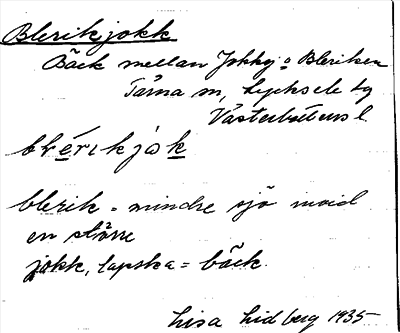 Blerikjokk
Bäck mellan Jokkoj o Bleriken
Tärna sn, Lycksele lg
Västerbottens l.
blérikjok
blerik = mindre sjö invid
en större
jokk, lapska = bäck.
Lisa Lidberg 1935